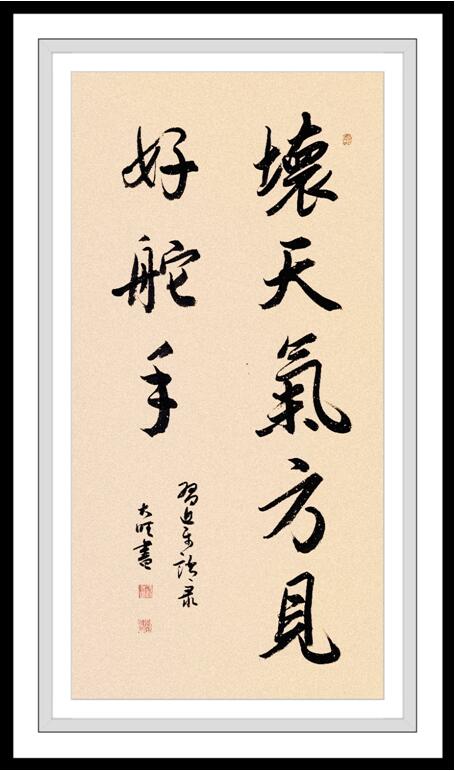 壞天氣方見
好舵手
習近平語录
大順書